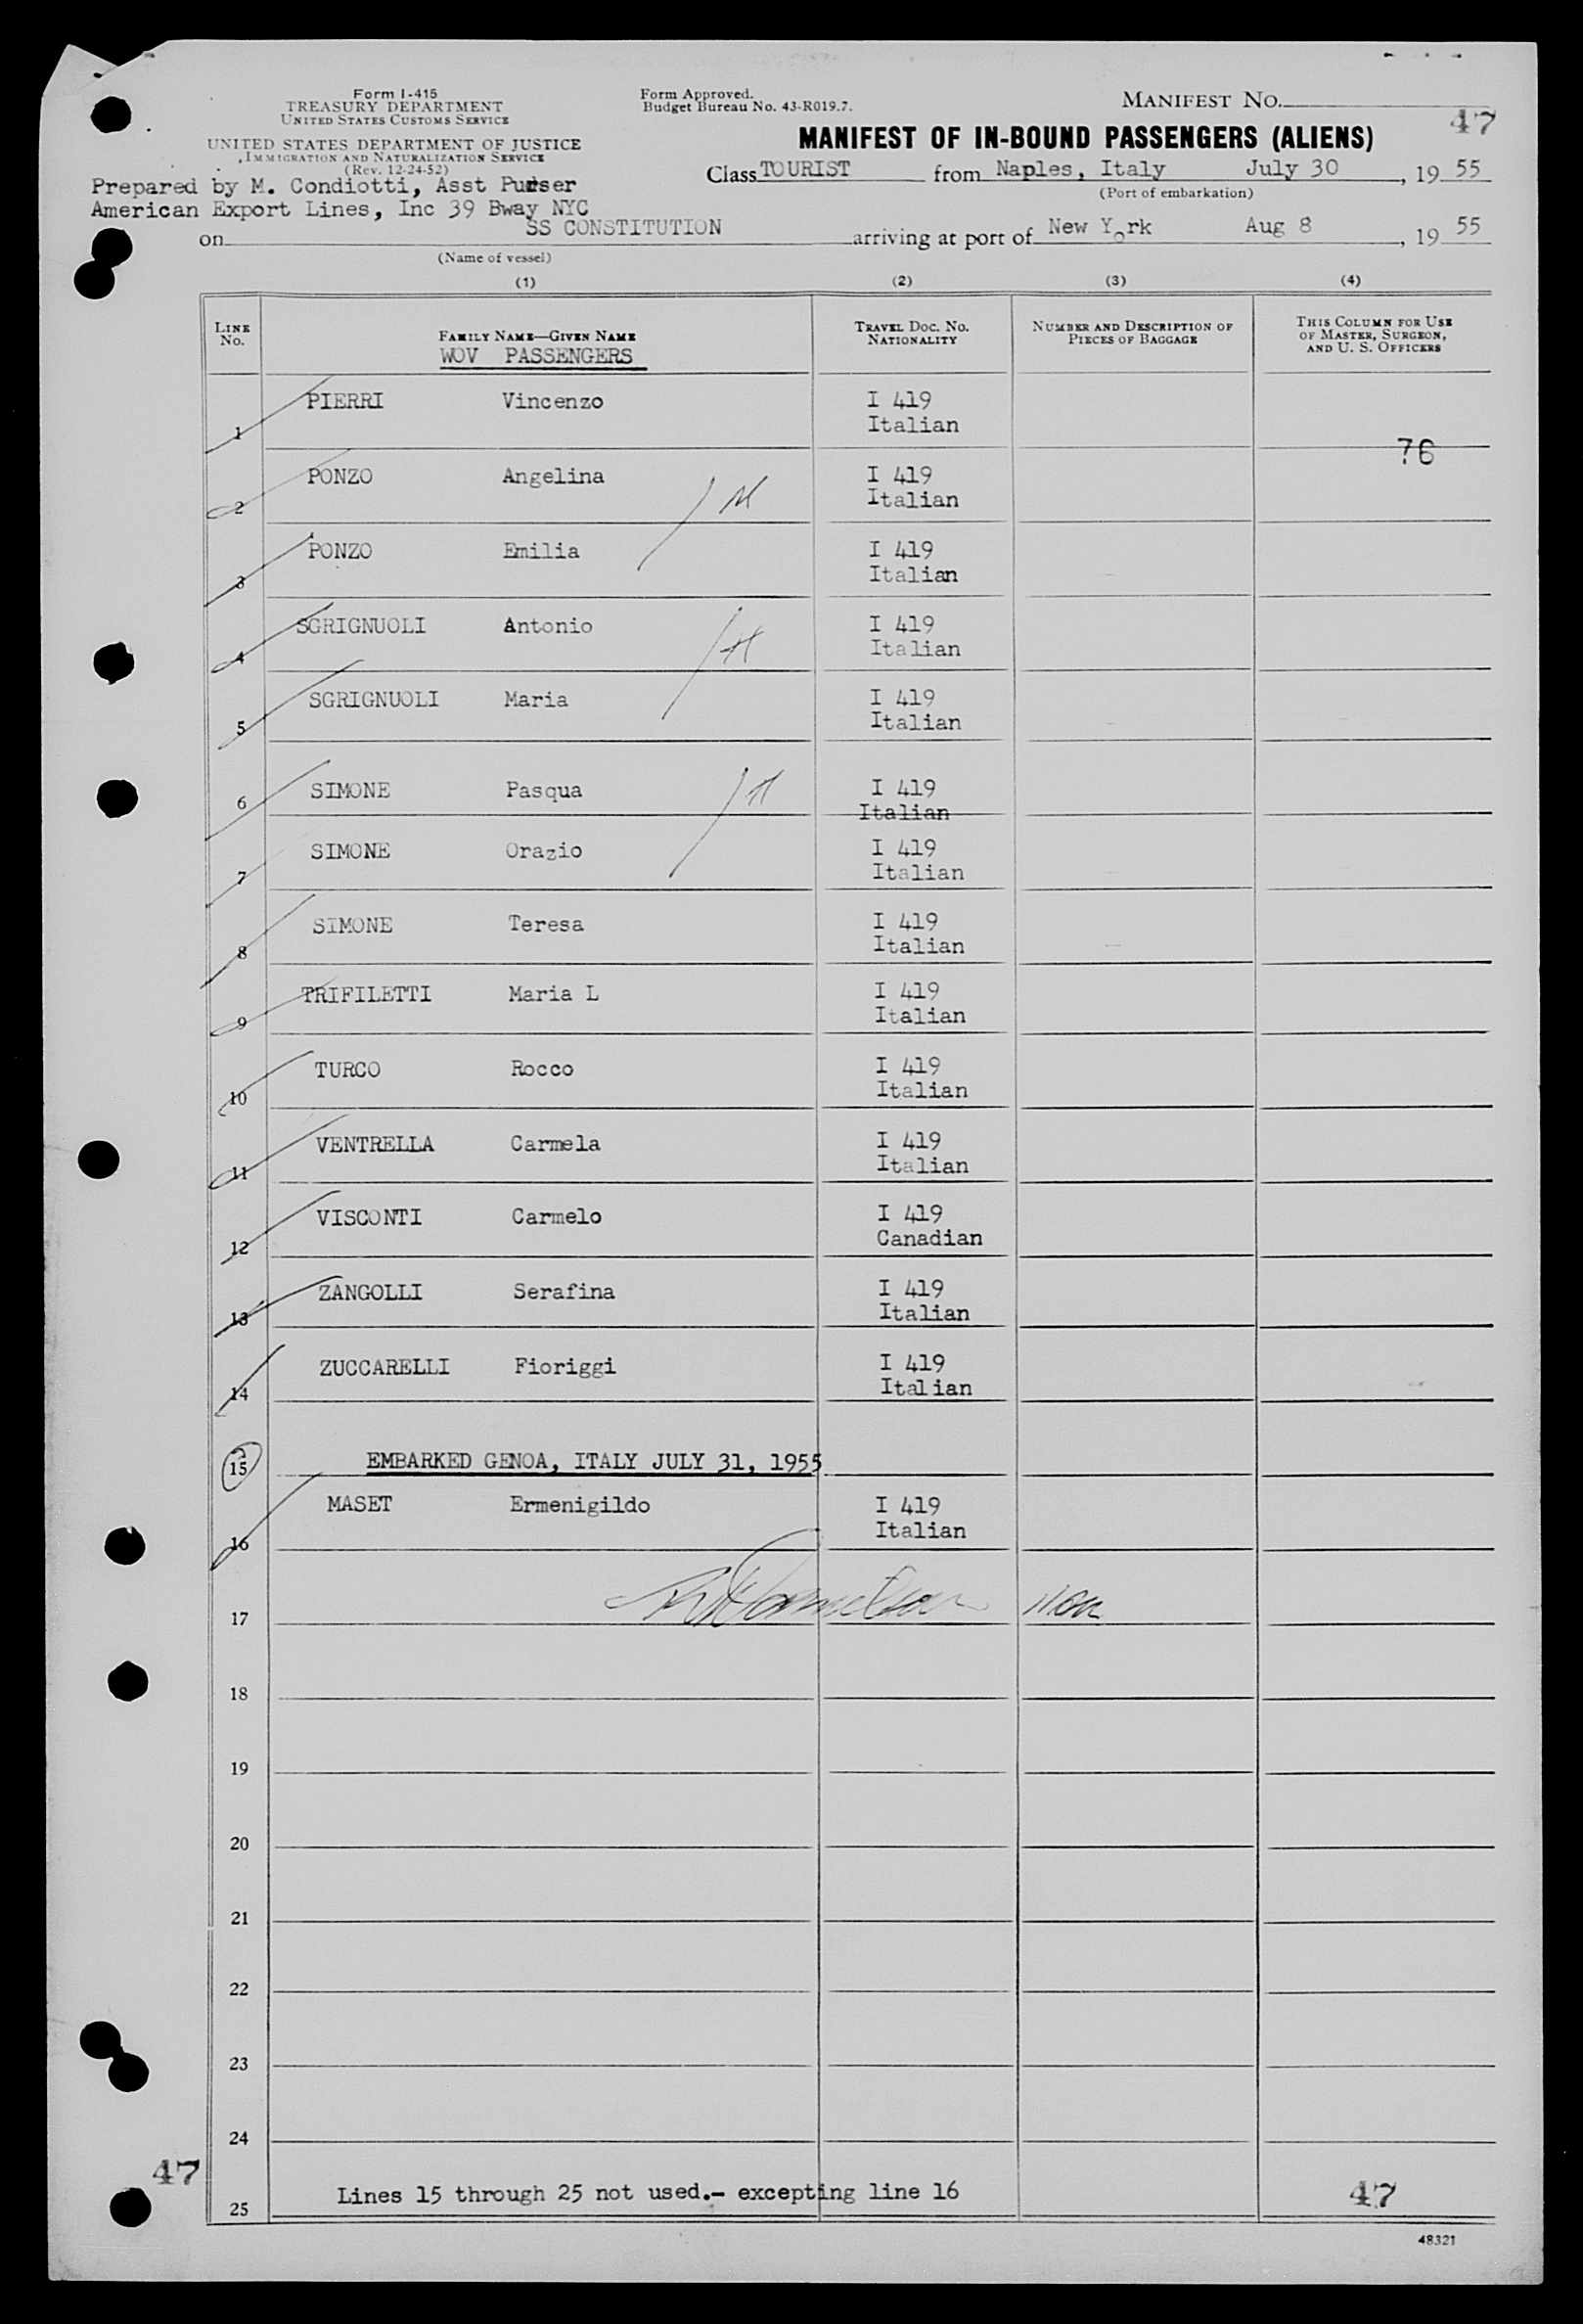 Form I-415
TREASURY DEPARTMENT
UNITED STATES CUSTOMS SERVICE
UNITED STATES DEPARTMENT OF JUSTICE
IMMIGRATION AND NATURALIZATION SERVICE
(Rev. 12-24-52)
Prepared by M. Condiotti, Asst Purser
American Export Lines, Inc 39 Bway NYC
Form Approved.
Budget Bureau No. 43-R019.7.
MANIFEST NO.
47
MANIFEST OF IN-BOUND PASSENGERS (ALIENS)
Class TOURIST from Naples, Italy July 30, 19 55
(Port of embarkation)
on SS CONSTITUTION arriving at port of New York Aug 8, 19 55
(Name of vessel)
(1) (2) (3) (4)
LINE NO. FAMILY NAME—GIVEN NAME TRAVEL DOC. NO. NATIONALITY NUMBER AND DESCRIPTION OF PIECES OF BAGGAGE THIS COLUMN FOR USE OF MASTER, SURGEON, AND U. S. OFFICERS
WOV PASSENGERS
1 PIERRI Vincenzo I 419
Italian
76
2 PONZO Angelina I 419
Italian
3 PONZO Emilia I 419
Italian
4 SGRIGNUOLI Antonio I 419
Italian
5 SGRIGNUOLI Maria I 419
Italian
6 SIMONE Pasqua I 419
Italian
7 SIMONE Orazio I 419
Italian
8 SIMONE Teresa I 419
Italian
9 TRIFILETTI Maria L I 419
Italian
10 TURCO Rocco I 419
Italian
11 VENTRELLA Carmela I 419
Italian
12 VISCONTI Carmelo I 419
Canadian
13 ZANGOLLI Serafina I 419
Italian
14 ZUCCARELLI Fioriggi I 419
Italian
15 EMBARKED GENOA, ITALY JULY 31, 1955
16 MASET Ermenigildo I 419
Italian
17
18
19
20
21
22
23
24
47
25 Lines 15 through 25 not used.- excepting line 16
47
48321